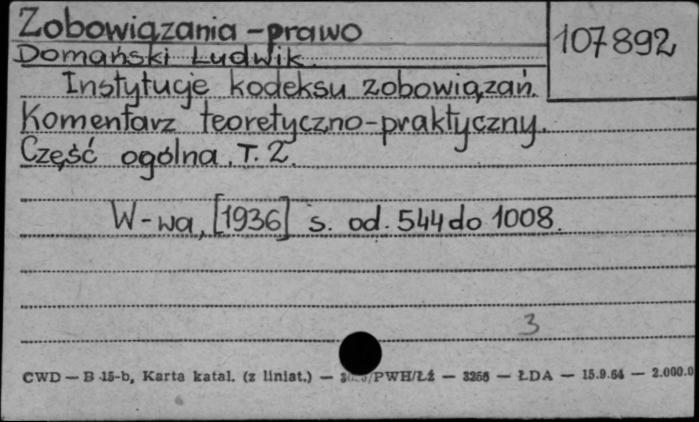 Zobowiązania - prawo
107892
Domański Ludwik.
Instytucje kodeksu zobowiązań.
Komentarz teoretyczno-praktyczny.
Część ogólna. T. 2.
W-wa, [1936] s. od. 544 do 1008.
3
CWD — B 15-b, Karta katal. (z liniat.) — /PWH/Łź — 3256 — ŁDA — 15.9.64 — 2.000.0